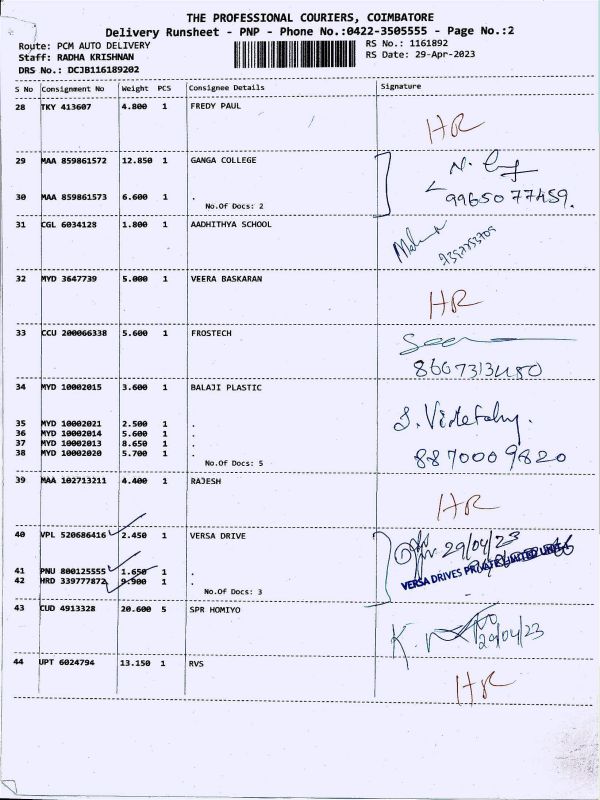 THE PROFESSIONAL COURIERS, COIMBATORE
Delivery Runsheet - PNP - Phone No.:0422-3505555 - Page No.:2
Route: PCM AUTO DELIVERY
RS No.: 1161892
Staff: RADHA KRISHNAN
RS Date: 29-Apr-2023
DRS No.: DCJB116189202
S No Consignment No Weight PCS Consignee Details Signature
28 TKY 413607 4.800 1 FREDY PAUL
HR
29 MAA 859861572 12.850 1 GANGA COLLEGE
30 MAA 859861573 6.600 1 .
9965077459.
No.Of Docs: 2
31 CGL 6034128 1.800 1 AADHITHYA SCHOOL
32 MYD 3647739 5.000 1 VEERA BASKARAN
HR
33 CCU 200066338 5.600 1 FROSTECH
8667313480
34 MYD 10002015 3.600 1 BALAJI PLASTIC
35 MYD 10002021 2.500 1 .
36 MYD 10002014 5.600 1 .
37 MYD 10002013 8.650 1 .
38 MYD 10002020 5.700 1 .
8870009820
No.Of Docs: 5
39 MAA 102713211 4.400 1 RAJESH
HR
40 VPL 520686416 2.450 1 VERSA DRIVE
29/04/23
41 PNU 800125555 1.650 1 .
42 HRD 339777872 9.900 1 .
VERSA DRIVES PRIVATE LIMITED
No.Of Docs: 3
43 CUD 4913328 20.600 5 SPR HOMIYO
29/04/23
44 UPT 6024794 13.150 1 RVS
HR